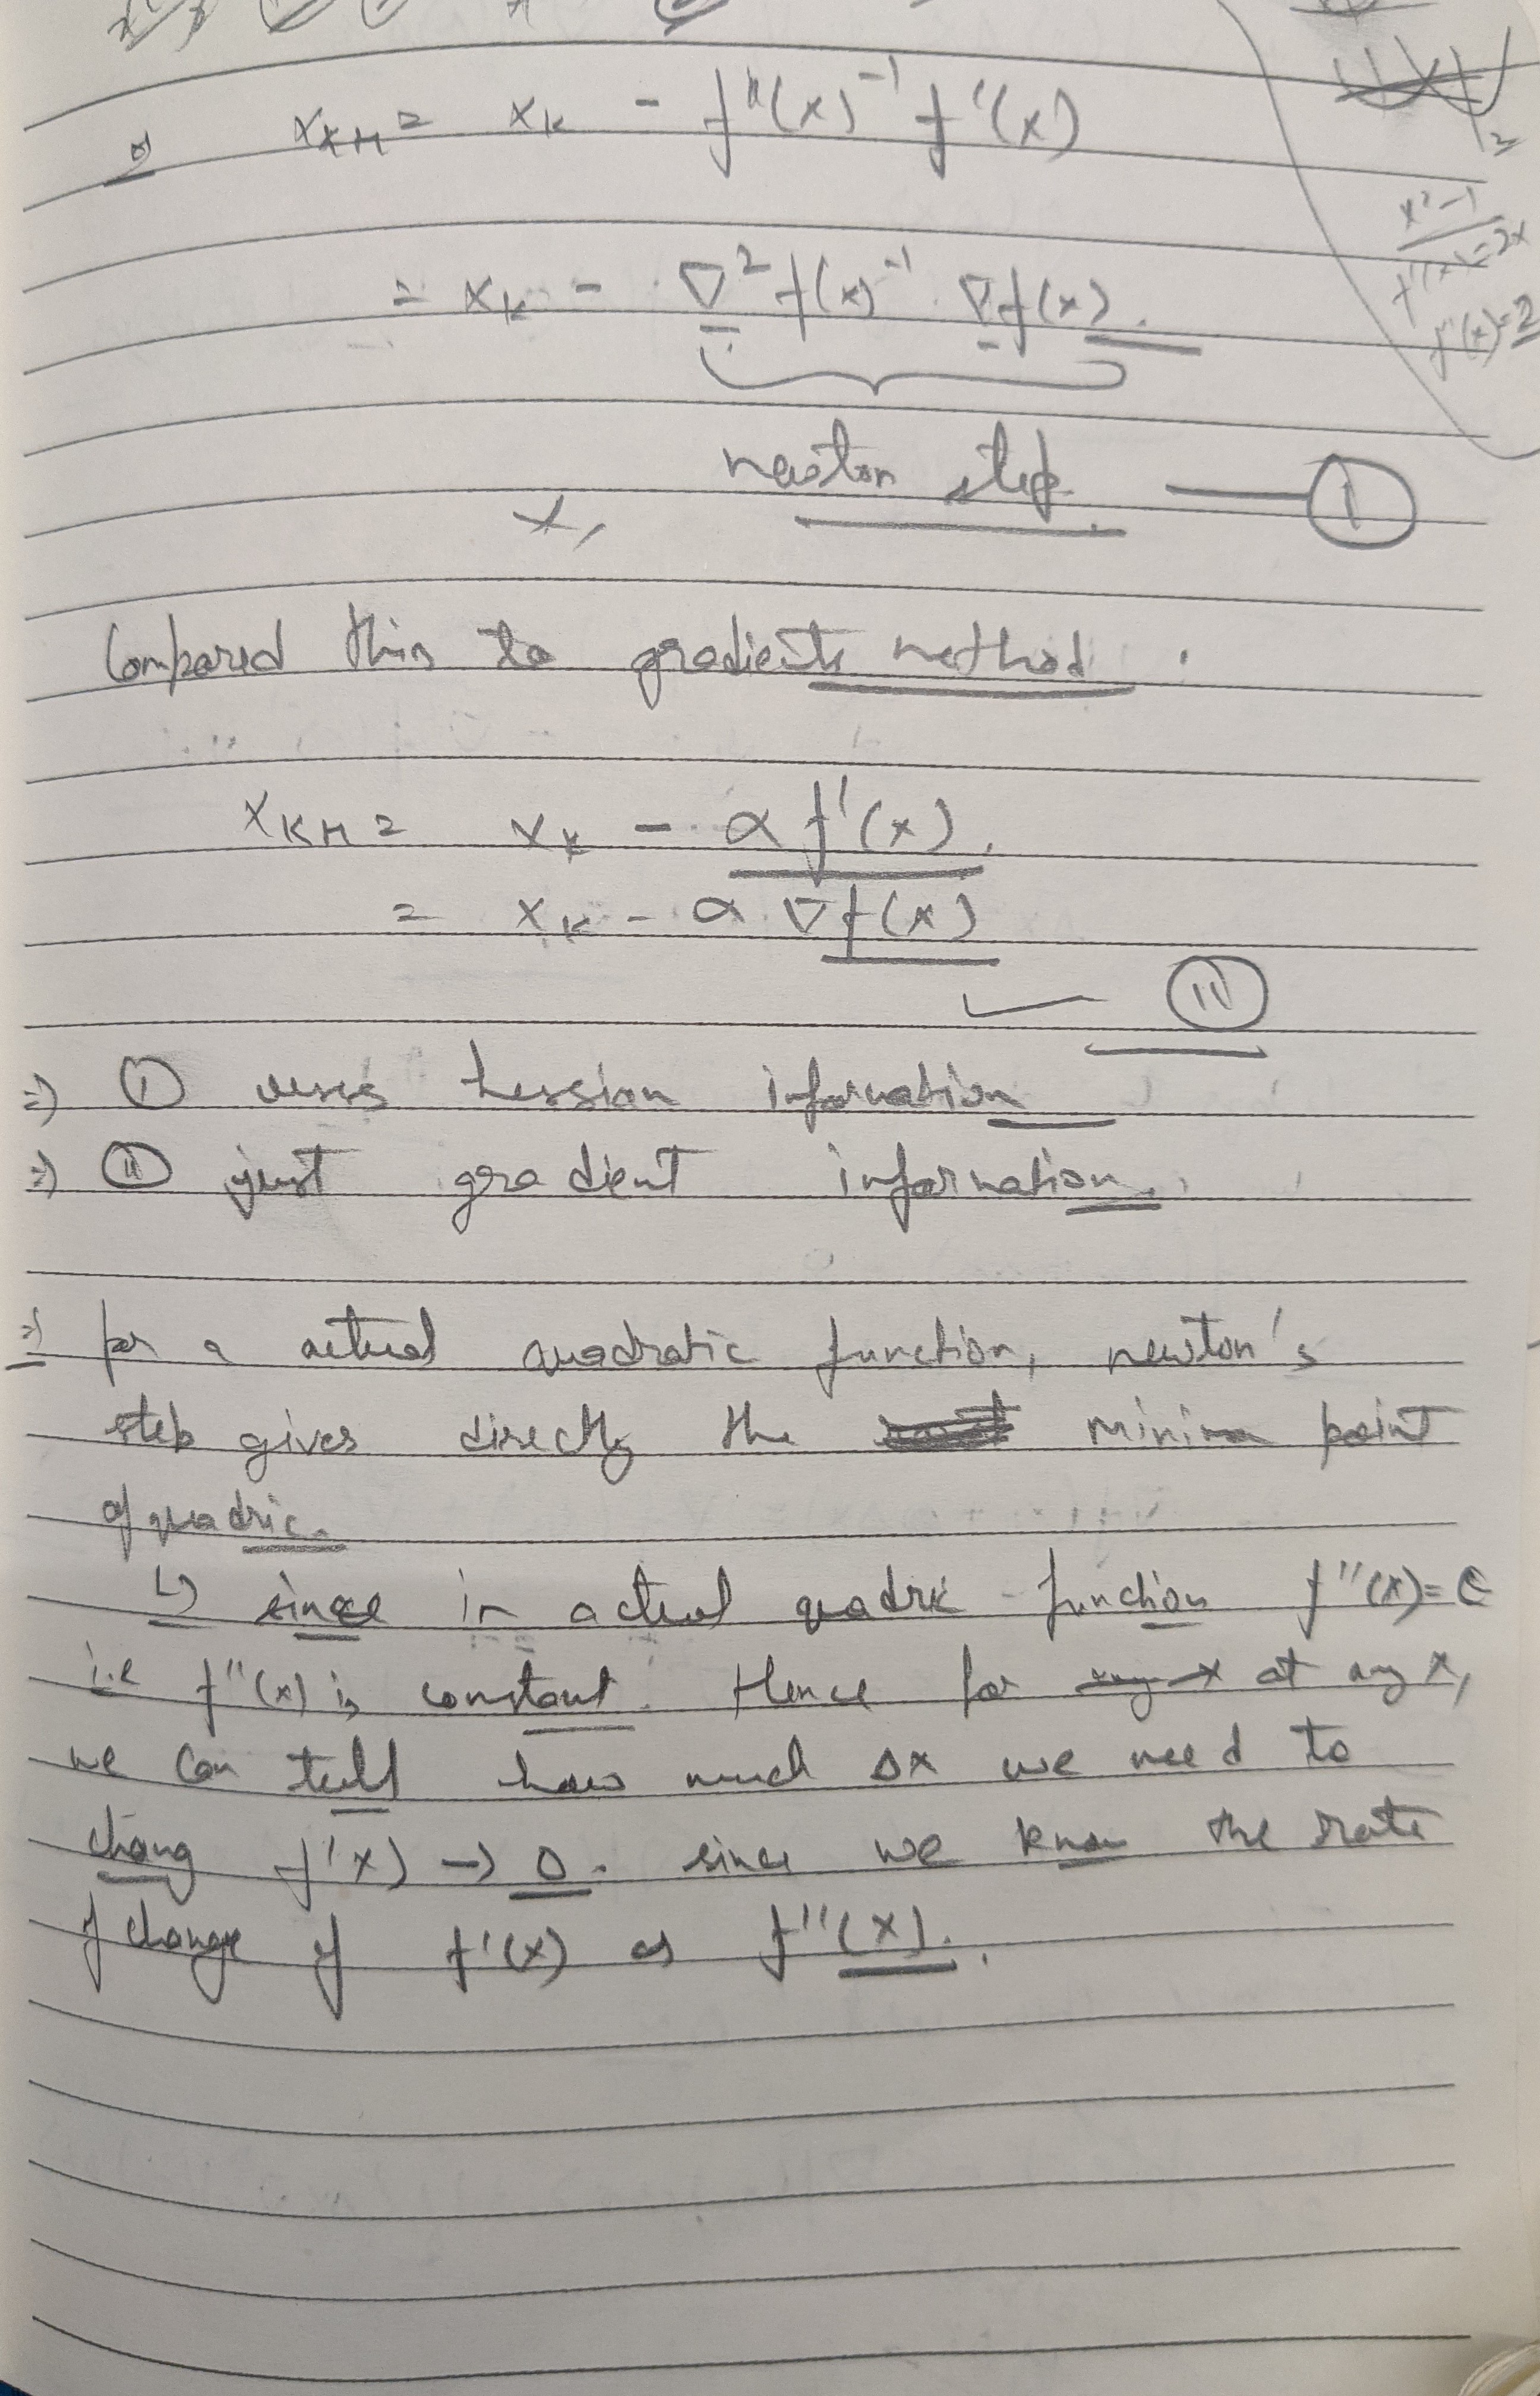 ⇒ x_{k+1} = x_k - f''(x)^{-1} f'(x)
= x_k - ∇² f(x)^{-1} ∇f(x).
newton step. — (I)
x,
Compared this to gradients method.
x_{k+1} = x_k - α f'(x).
= x_k - α ∇f(x)
— (II)
⇒ (I) uses hessian information
⇒ (II) just gradient information.
⇒ for a actual quadratic function, newton's
step gives directly the minima point
of quadric.
↳ since in actual quadric function f''(x) = C
i.e f''(x) is constant. Hence for at any x,
we can tell how much Δx we need to
chang f'x) → 0. since we know the rate
of change of f'(x) as f''(x).
x²-1
f'(x)=2x
f''(x)=2